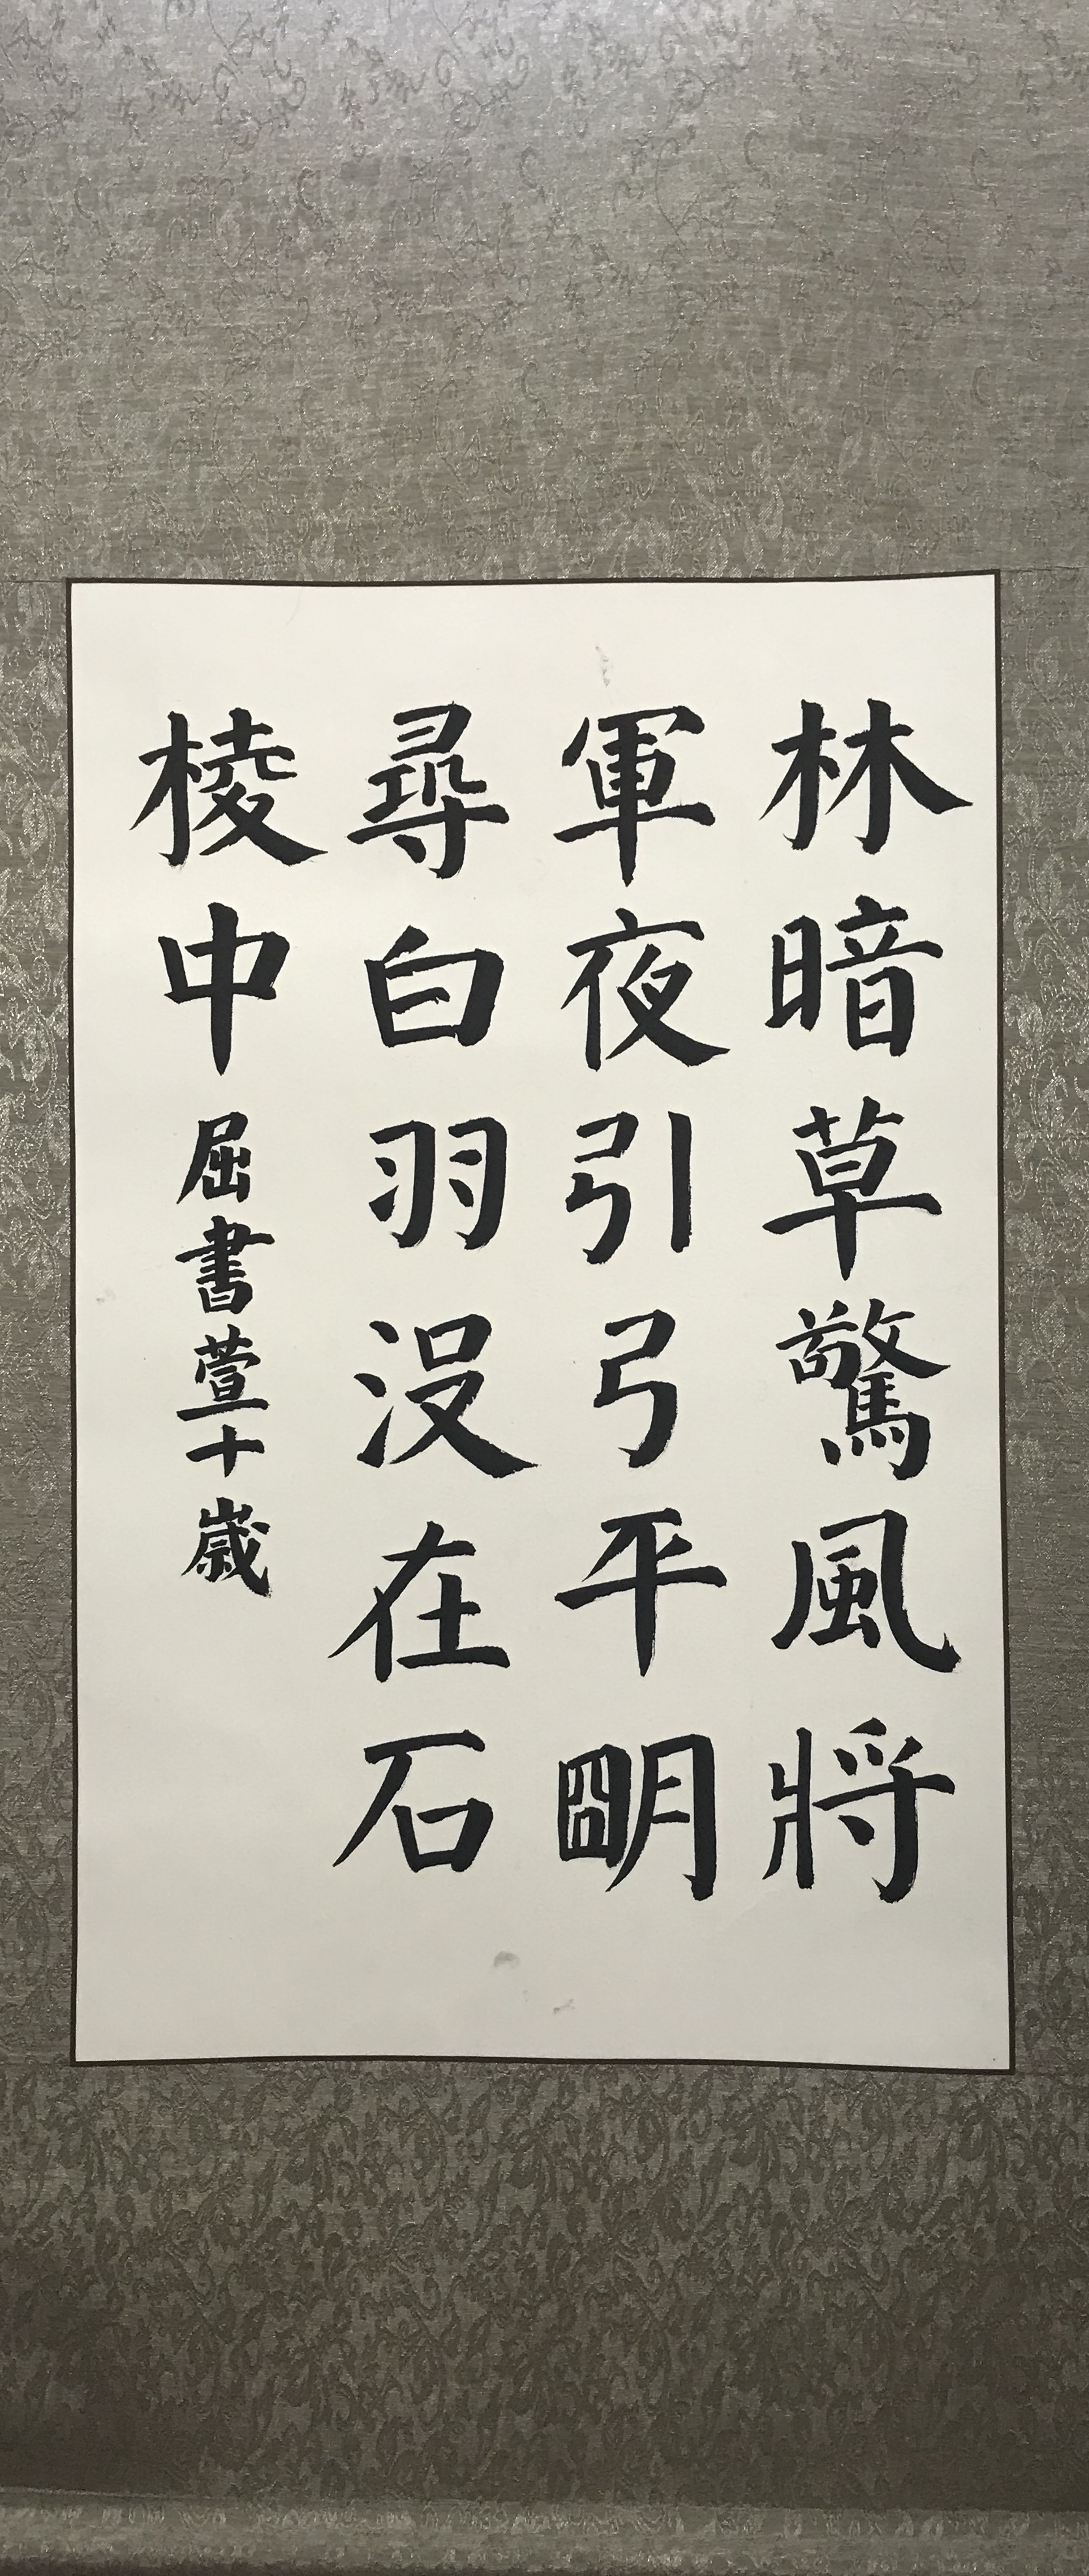 林暗草驚風將
軍夜引弓平明
尋白羽没在石
棱中 屈書萱十歲